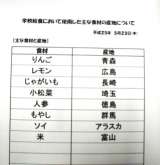 学校給食において使用した主な食材の産地について
平成25年 5月23日(木)
(主な食材の産地)
食材 産地
りんご 青森
レモン 広島
じゃがいも 長崎
小松菜 埼玉
人参 徳島
もやし 群馬
ソイ アラスカ
米 富山